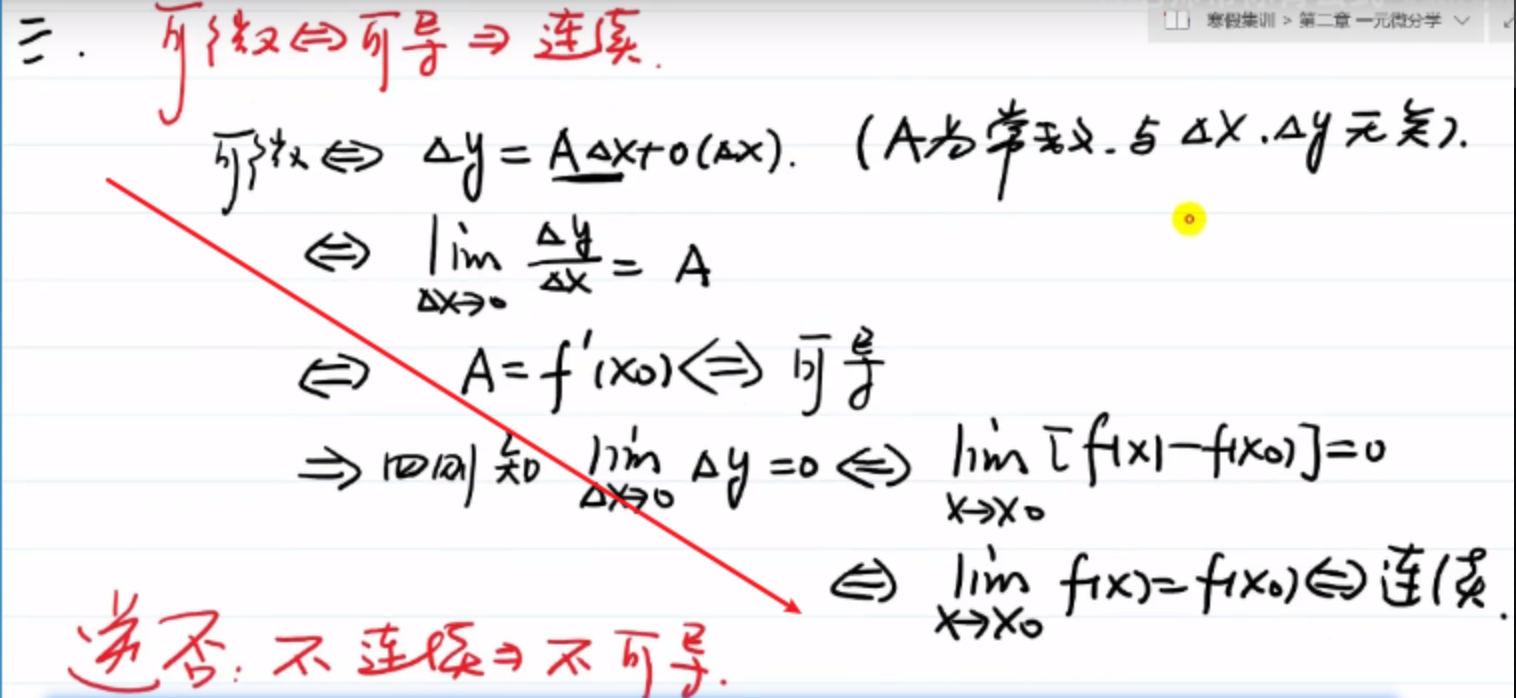 寒假集训 > 第二章 一元微分学
三. 可微⇔可导⇒连续.
可微⇔ Δy=AΔx+o(Δx). (A为常数.与Δx.Δy无关).
⇔ lim Δx→0 Δy/Δx = A
⇔ A=f'(x₀)⇔可导
⇒ 四则知 lim Δx→0 Δy=0 ⇔ lim x→x₀ [f(x)-f(x₀)]=0
⇔ lim x→x₀ f(x)=f(x₀)⇔连续.
逆否:不连续⇒不可导.